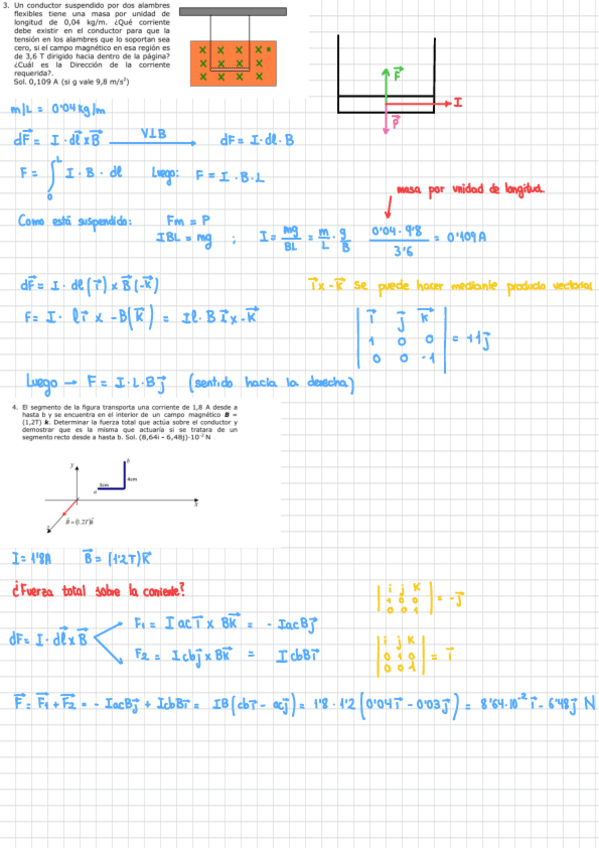 3. Un conductor suspendido por dos alambres
flexibles tiene una masa por unidad de
longitud de 0,04 kg/m. ¿Qué corriente
debe existir en el conductor para que la
tensión en los alambres que lo soportan sea
cero, si el campo magnético en esa región es
de 3,6 T dirigido hacia dentro de la página?
¿Cuál es la Dirección de la corriente
requerida?.
Sol. 0,109 A (si g vale 9,8 m/s²)
x x x x
x x x x
x x x x
F⃗
I
P⃗
m/L = 0'04 kg/m
dF⃗ = I · dl⃗ x B⃗ V⊥B dF = I · dl · B
F = ∫₀ᴸ I · B · dl Luego: F = I · B · L
masa por unidad de longitud
Como está suspendido: Fm = P
IBL = mg ; I = mg/BL = m/L · g/B 0'04 · 9'8 / 3'6 = 0'109 A
dF⃗ = I · dl (i⃗) x B⃗ (-k⃗) i⃗ x -k⃗ se puede hacer mediante producto vectorial
F = I · l i⃗ x -B(k⃗) = Il · B i⃗ x -k⃗
| i⃗ j⃗ k⃗ |
| 1 0 0 | = +1j⃗
| 0 0 -1 |
Luego → F = I · L · B j⃗ (sentido hacia la derecha)
4. El segmento de la figura transporta una corriente de 1,8 A desde a
hasta b y se encuentra en el interior de un campo magnético B =
(1,2T) k. Determinar la fuerza total que actúa sobre el conductor y
demostrar que es la misma que actuaría si se tratara de un
segmento recto desde a hasta b. Sol. (8,64i – 6,48j)·10⁻² N
y
b
4cm
3cm
a
x
I = 1'8A B⃗ = (1'2T) k⃗
¿Fuerza total sobre la corriente?
dF = I · dl⃗ x B⃗
F₁ = I ac i⃗ x Bk⃗ = - IacBj⃗
F₂ = Icbj⃗ x Bk⃗ = IcbBi⃗
| i j k |
| 1 0 0 | = -j⃗
| 0 0 1 |
| i j k |
| 0 1 0 | = i⃗
| 0 0 1 |
F⃗ = F₁⃗ + F₂⃗ = - IacBj⃗ + IcbBi⃗ = IB (cbi⃗ - acj⃗) = 1'8 · 1'2 (0'04i⃗ - 0'03j⃗) = 8'64·10⁻² i⃗ - 6'48j⃗ N